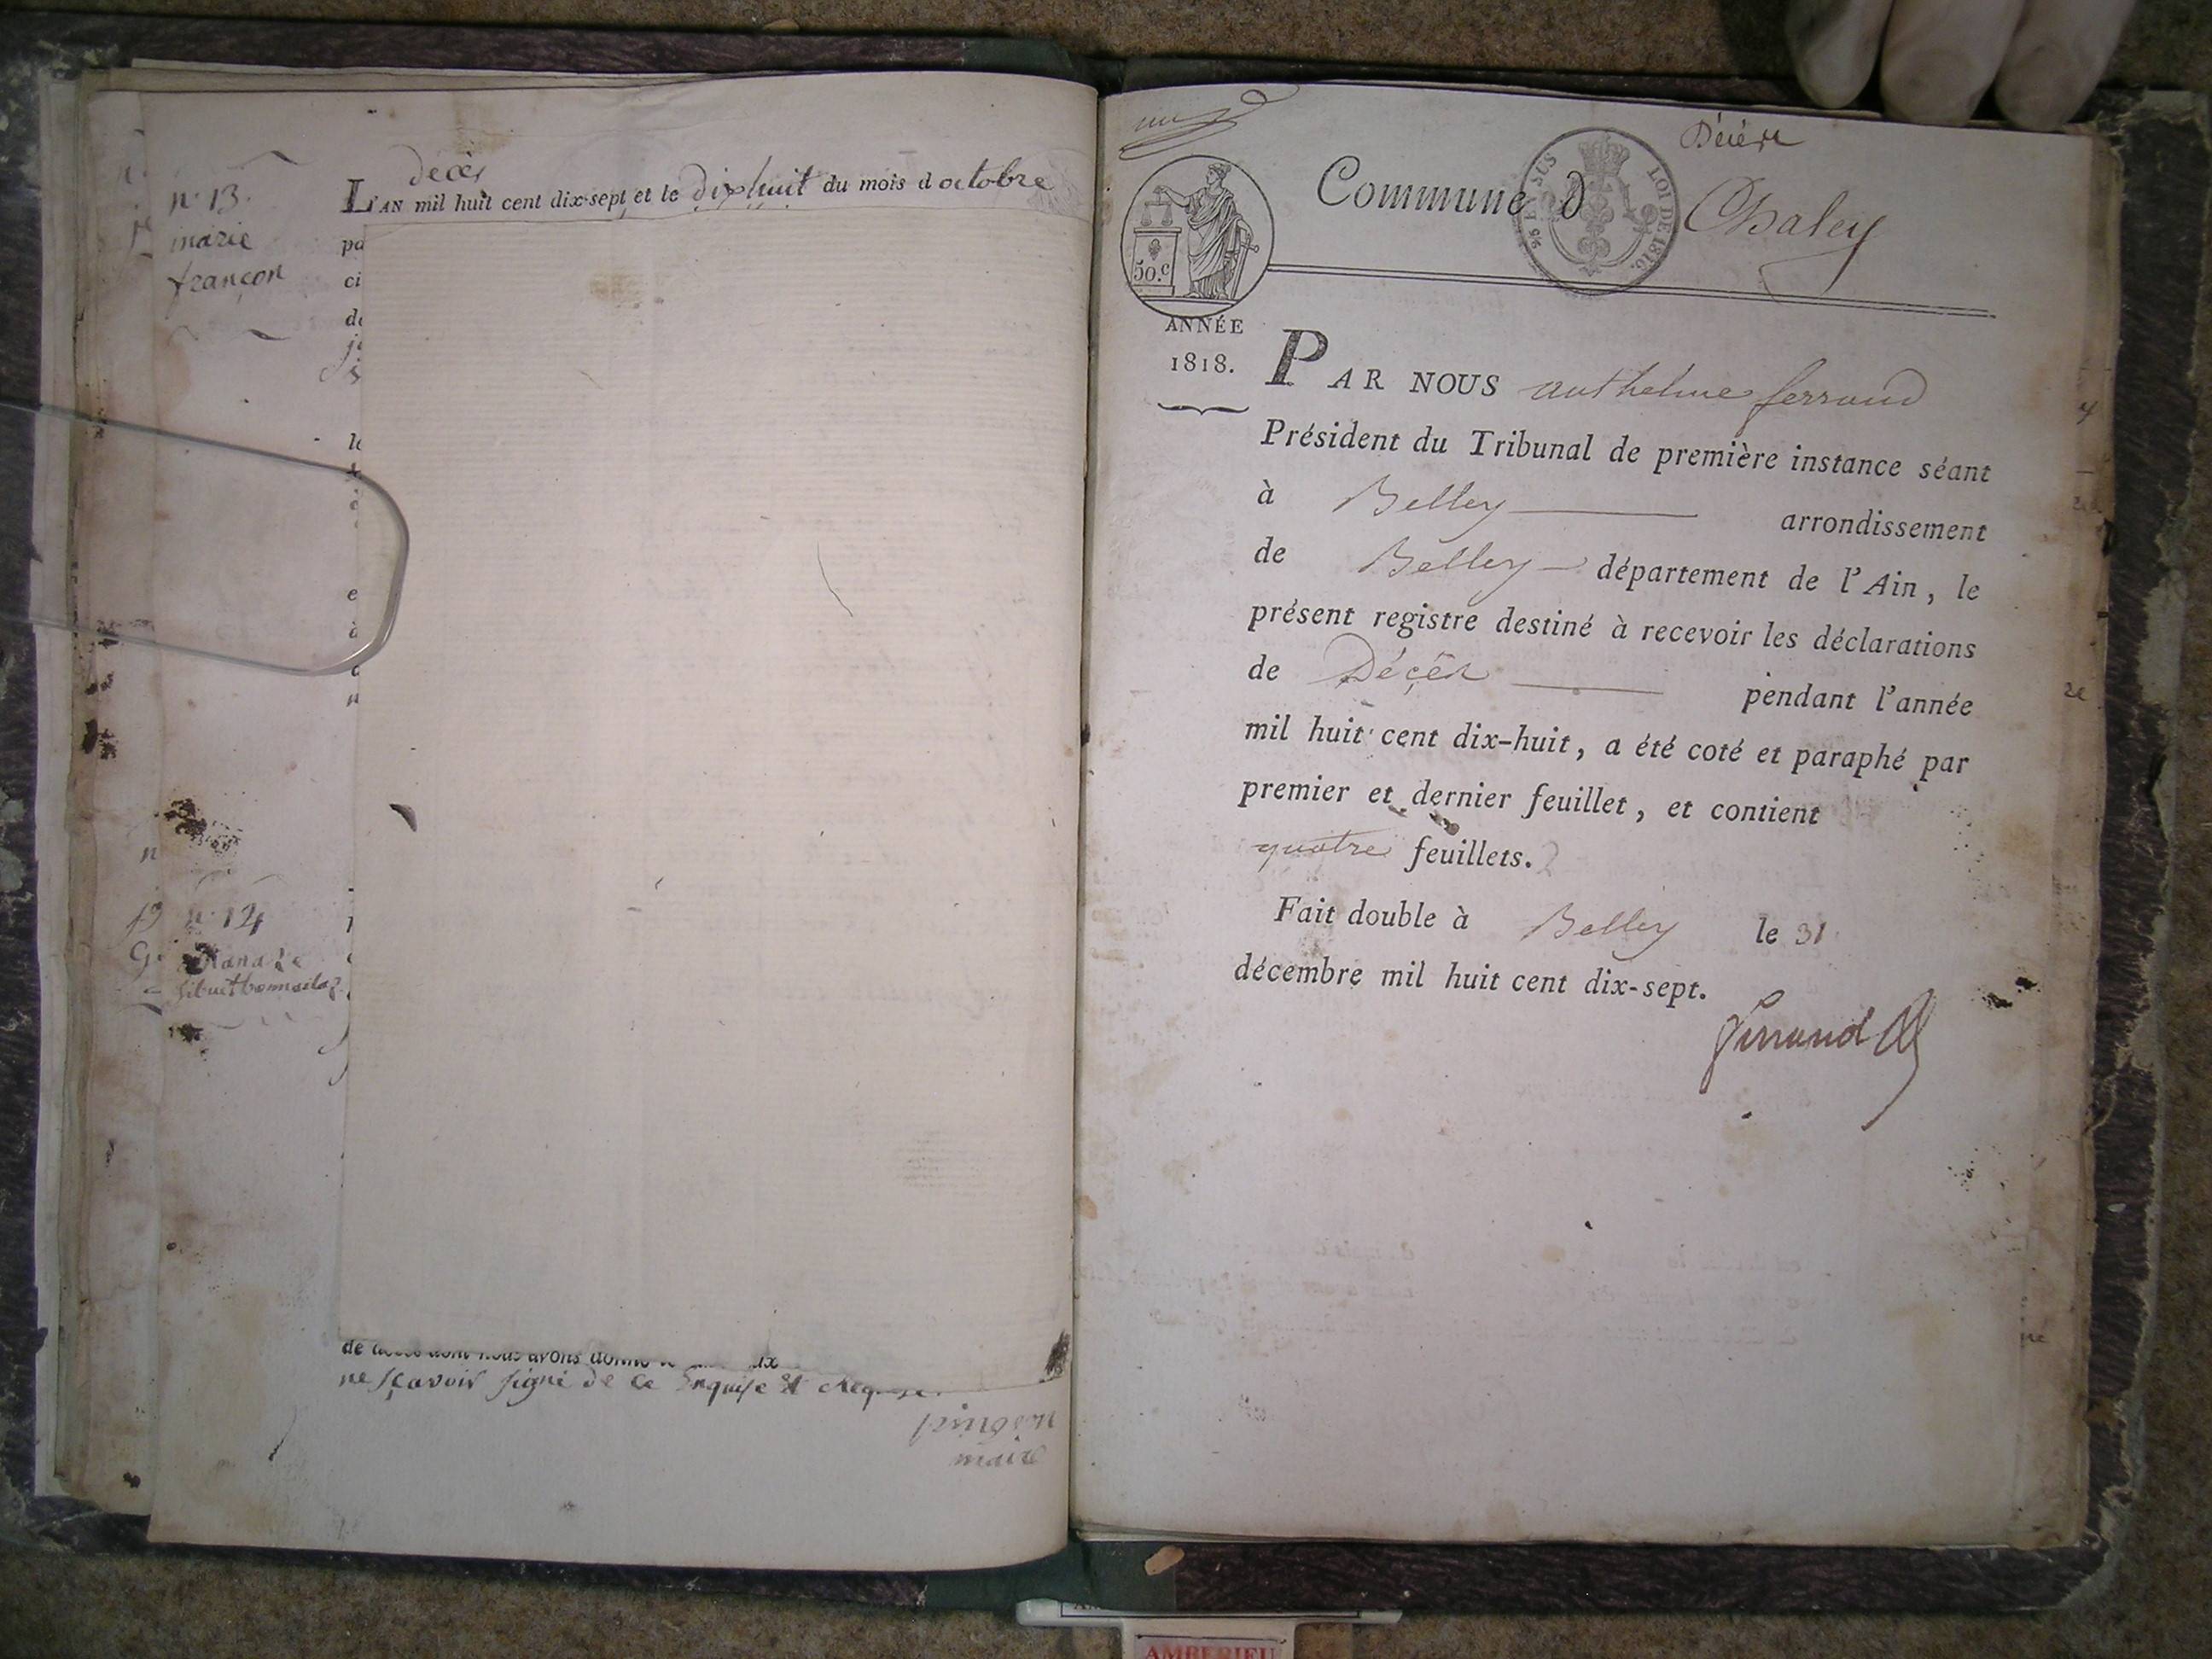 décès
n.° 13.
marie
françon
L'AN mil huit cent dix-sept et le dixhuit du mois d octobre
pa
ci
de
n.° 14
de décès dont nous avons donné
ne sçavoir signé de ce enquise et requise.
pingeon
maire
Décès
Commune d Chaley
25 EN SUS
LOI DE 1816.
50.c
ANNÉE
1818.
PAR NOUS anthelme ferrand
Président du Tribunal de première instance séant
à Belley arrondissement
de Belley département de l'Ain, le
présent registre destiné à recevoir les déclarations
de Décès pendant l'année
mil huit cent dix-huit, a été coté et paraphé par
premier et dernier feuillet, et contient
quatre feuillets.
Fait double à Belley le 31
décembre mil huit cent dix-sept.
ferrand
AMBERIEU